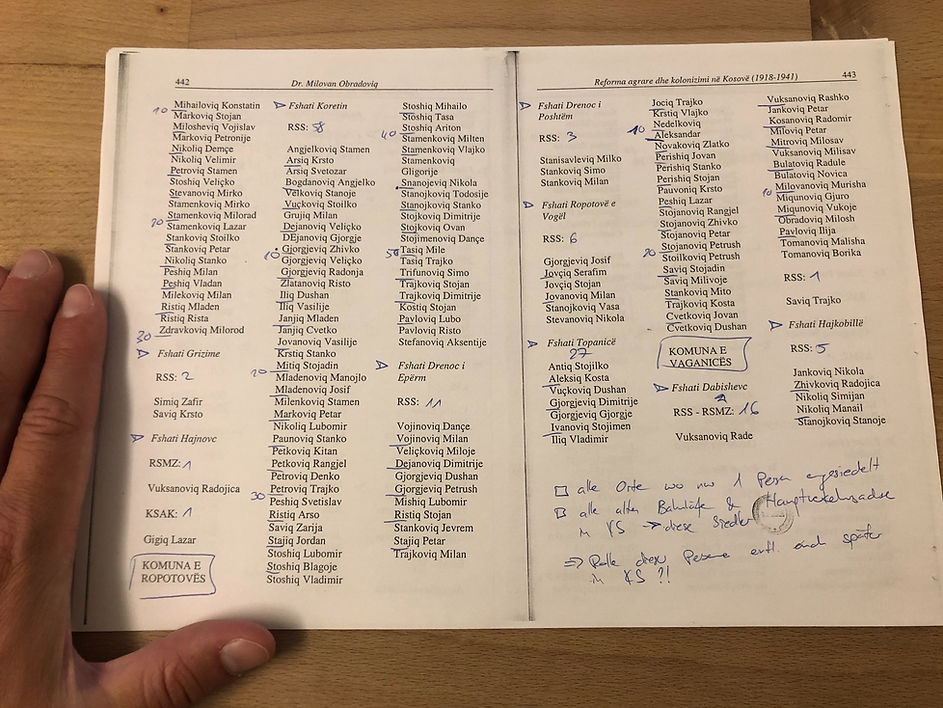 442
Dr. Milovan Obradoviq
10
Mihailoviq Konstatin
Markoviq Stojan
Milosheviq Vojislav
Markoviq Petronije
Nikoliq Demçe
Nikoliq Velimir
Petroviq Stamen
Stoshiq Veliçko
Stevanoviq Mirko
Stamenkoviq Mirko
20
Stamenkoviq Milorad
Stamenkoviq Lazar
Stankoviq Stoilko
Stankoviq Petar
Nikoliq Stanko
Peshiq Milan
Peshiq Vladan
Milekoviq Milan
Ristiq Mladen
Ristiq Rista
30
Zdravkoviq Milorod
Fshati Grizime
RSS: 2
Simiq Zafir
Saviq Krsto
Fshati Hajnovc
RSMZ: 1
Vuksanoviq Radojica
KSAK: 1
Gigiq Lazar
KOMUNA E
ROPOTOVËS
Fshati Koretin
RSS: 58
Angjelkoviq Stamen
Arsiq Krsto
Arsiq Svetozar
Bogdanoviq Angjelko
Velkoviq Stanoje
Vuçkoviq Stoilko
Grujiq Milan
Dejanoviq Veliçko
DEjanoviq Gjorgje
10
Gjorgjeviq Zhivko
Gjorgjeviq Veliçko
Gjorgjeviq Radonja
Zlatanoviq Risto
Iliq Dushan
Iliq Vasilije
Janjiq Mladen
Janjiq Cvetko
Jovanoviq Vasilije
Krstiq Stanko
20
Mitiq Stojadin
Mladenoviq Manojlo
Mladenoviq Josif
Milenkoviq Stamen
Markoviq Petar
Nikoliq Lubomir
Paunoviq Stanko
Petkoviq Kitan
Petkoviq Rangjel
Petroviq Denko
Petroviq Trajko
30
Peshiq Svetislav
Ristiq Arso
Saviq Zarija
Stajiq Jordan
Stoshiq Lubomir
Stoshiq Blagoje
Stoshiq Vladimir
Stoshiq Mihailo
Stoshiq Tasa
Stoshiq Ariton
40
Stamenkoviq Milten
Stamenkoviq Vlajko
Stamenkoviq
Gligorije
Snanojeviq Nikola
Stanojkoviq Todosije
Stanojkoviq Stanko
Stojkoviq Dimitrije
Stojkoviq Ovan
Stojimenoviq Dançe
50
Tasiq Mile
Tasiq Trajko
Trifunoviq Simo
Trajkoviq Stojan
Trajkoviq Dimitrije
Kostiq Stojan
Pavloviq Lubo
Pavloviq Risto
Stefanoviq Aksentije
Fshati Drenoc i
Epërm
RSS: 11
Vojinoviq Dançe
Vojinoviq Milan
Veliçkoviq Miloje
Dejanoviq Dimitrije
Gjorgjeviq Dushan
Gjorgjeviq Petrush
Mishiq Lubomir
Ristiq Stojan
Stankoviq Jevrem
Stajiq Petar
Trajkoviq Milan
Reforma agrare dhe kolonizimi në Kosovë (1918-1941)
443
Fshati Drenoc i
Poshtëm
RSS: 3
Stanisavleviq Milko
Stankoviq Simo
Stankoviq Milan
Fshati Ropotovë e
Vogël
RSS: 6
Gjorgjeviq Josif
Jovçiq Serafim
Jovçiq Stojan
Jovanoviq Milan
Stanojkoviq Vasa
Stevanoviq Nikola
Fshati Topanicë
27
Antiq Stojilko
Aleksiq Kosta
Vuçkoviq Dushan
Gjorgjeviq Dimitrije
Gjorgjeviq Gjorgje
Ivanoviq Stojimen
Iliq Vladimir
Jociq Trajko
Krstiq Vlajko
10
Nedelkoviq
Aleksandar
Novakoviq Zlatko
Perishiq Jovan
Perishiq Stanko
Perishiq Stojan
Pauvoniq Krsto
Peshiq Lazar
Stojanoviq Rangjel
Stojanoviq Zhivko
Stojanoviq Petar
Stojanoviq Petrush
20
Stoilkoviq Petrush
Saviq Stojadin
Saviq Milivoje
Stankoviq Mito
Trajkoviq Kosta
Cvetkoviq Jovan
Cvetkoviq Dushan
KOMUNA E
VAGANICËS
Fshati Dabishevc
RSS - RSMZ: 16
Vuksanoviq Rade
Vuksanoviq Rashko
Jankoviq Petar
Kosanoviq Radomir
Miloviq Petar
Mitroviq Milosav
Vuksanoviq Milisav
Bulatoviq Radule
Bulatoviq Novica
10
Milovanoviq Murisha
Miqunoviq Gjuro
Miqunoviq Vukoje
Obradoviq Milosh
Pavloviq Ilija
Tomanoviq Malisha
Tomanoviq Borika
RSS: 1
Saviq Trajko
Fshati Hajkobillë
RSS: 5
Jankoviq Nikola
Zhivkoviq Radojica
Nikoliq Simijan
Nikoliq Manail
Stanojkoviq Stanoje
alle Orte wo nur 1 Person angesiedelt
alle alten Bahnhöfe & Hauptverkehrsachse
in KS → diese Siedler
⇒ Rolle dieser Personen evtl. auch später
in KS ?!